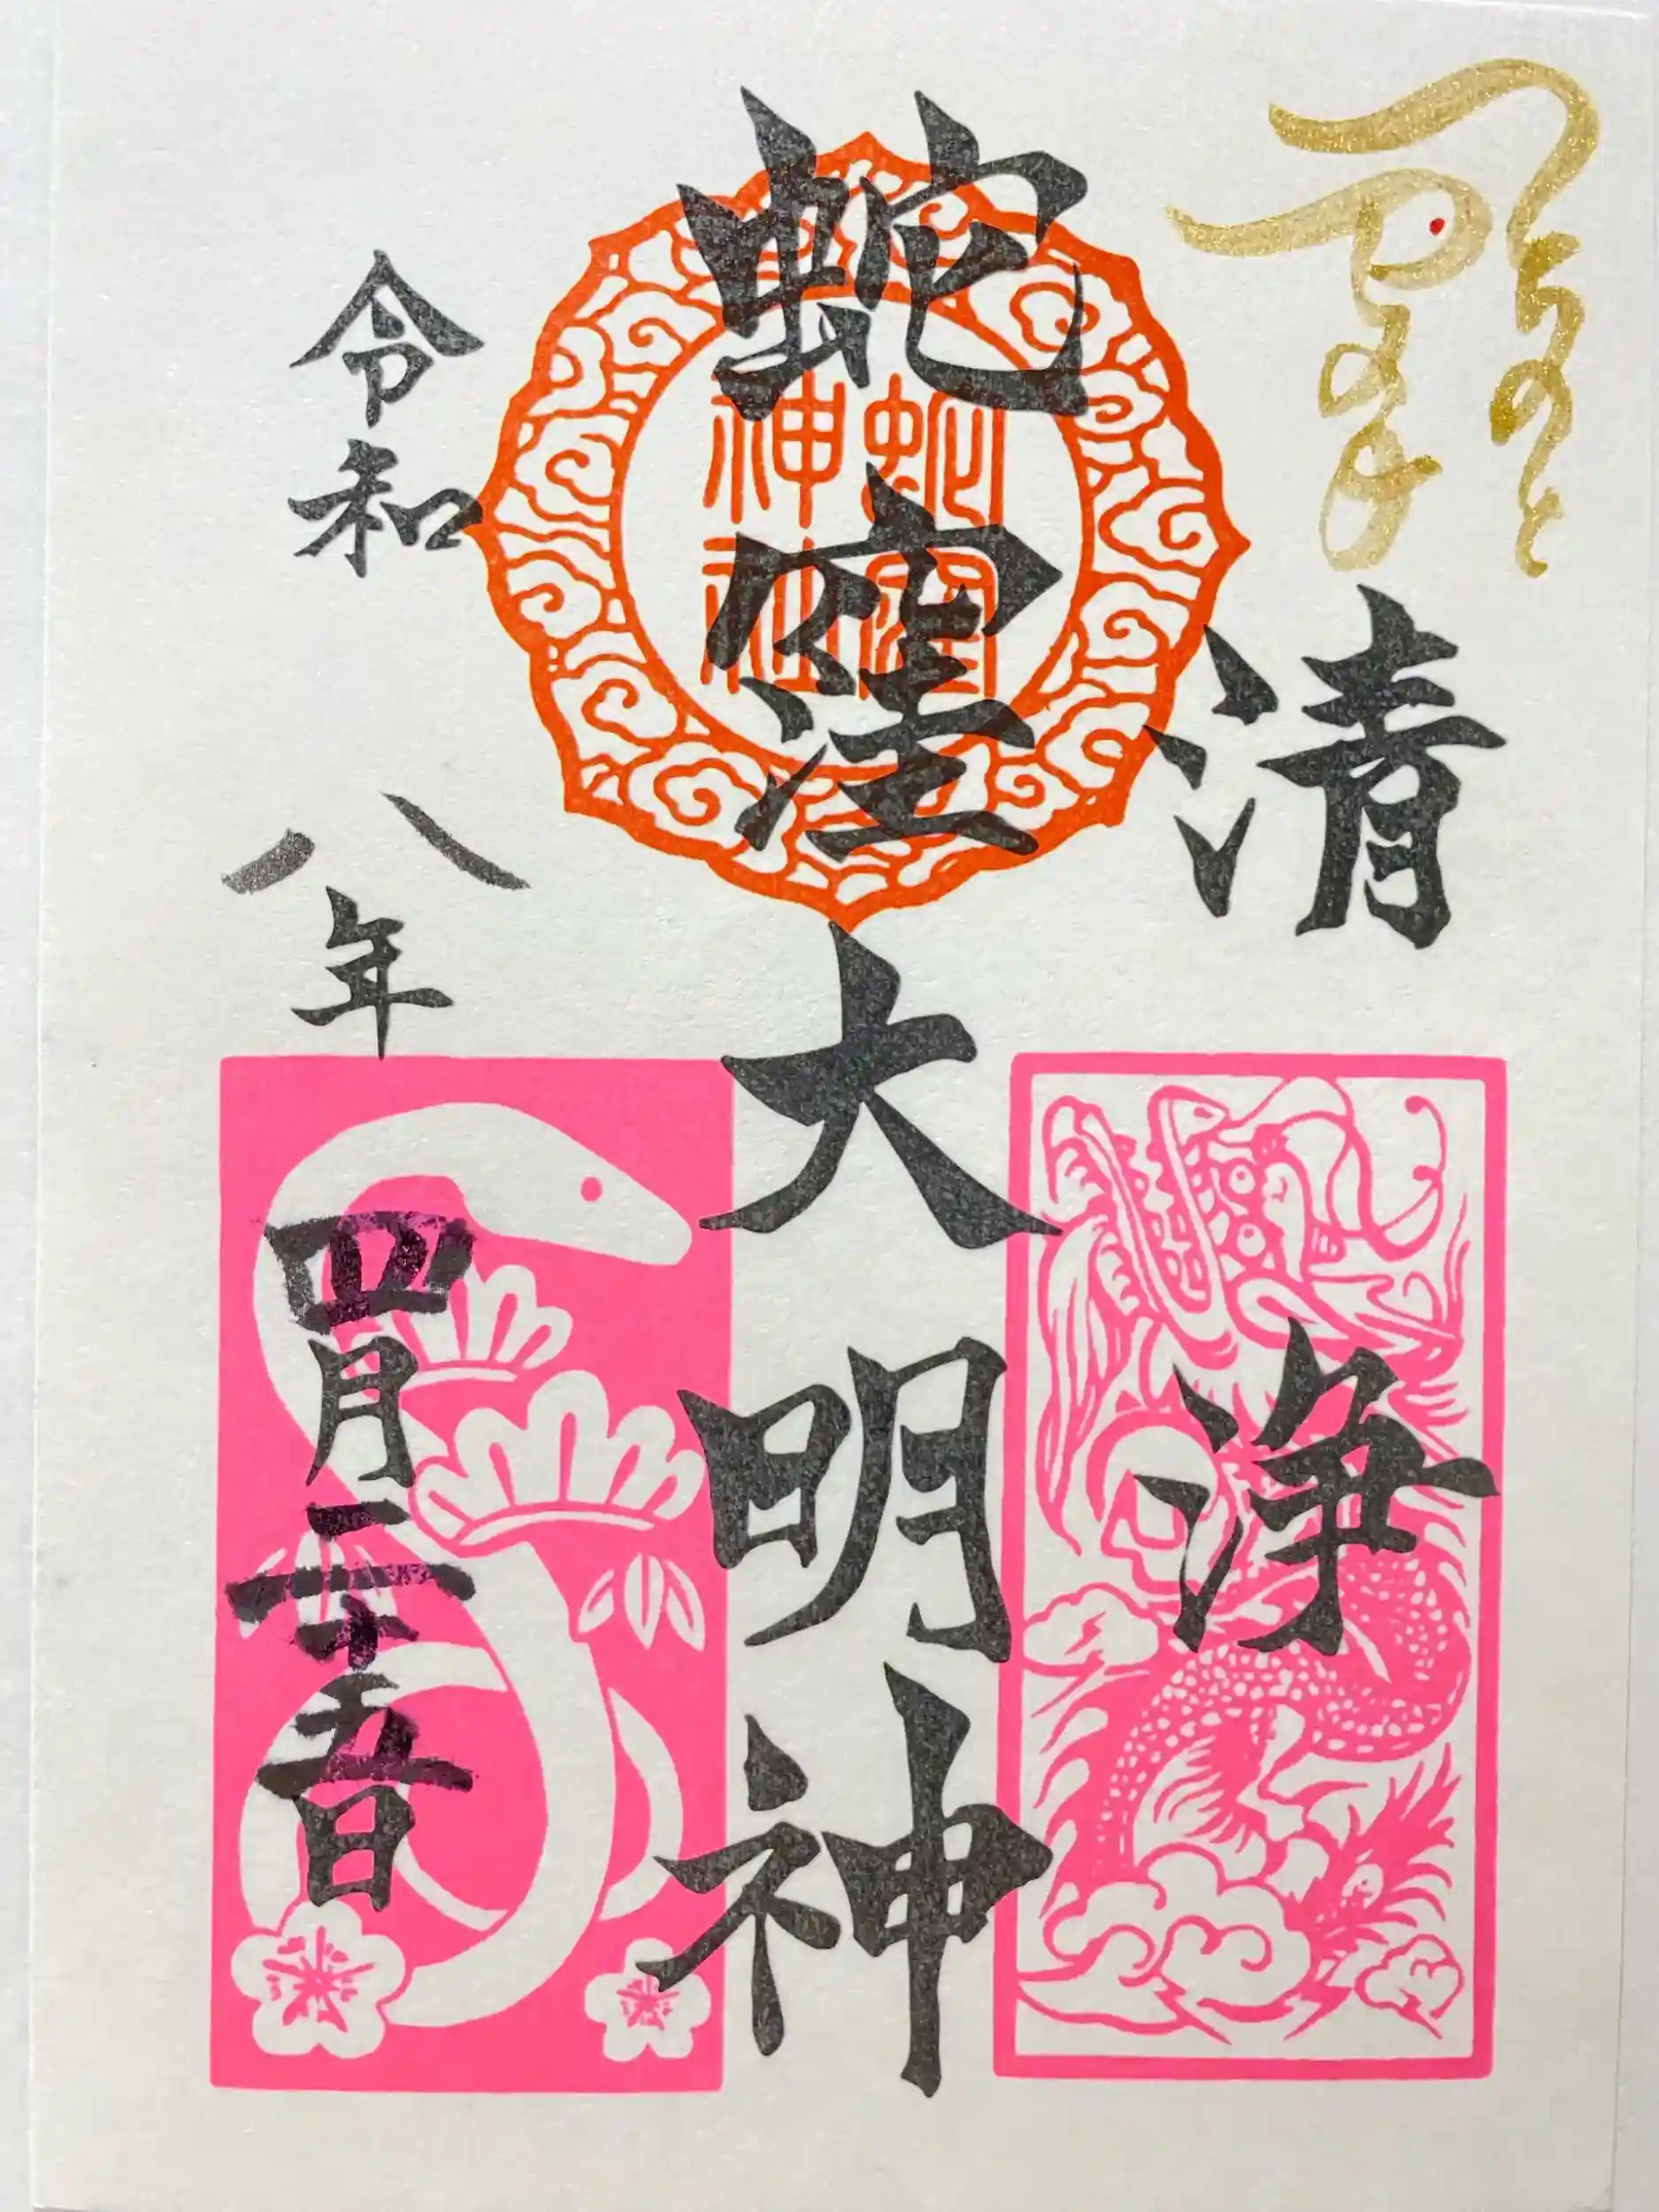 清浄
蛇窪大明神
蛇窪
神社
令和八年四月二十五日